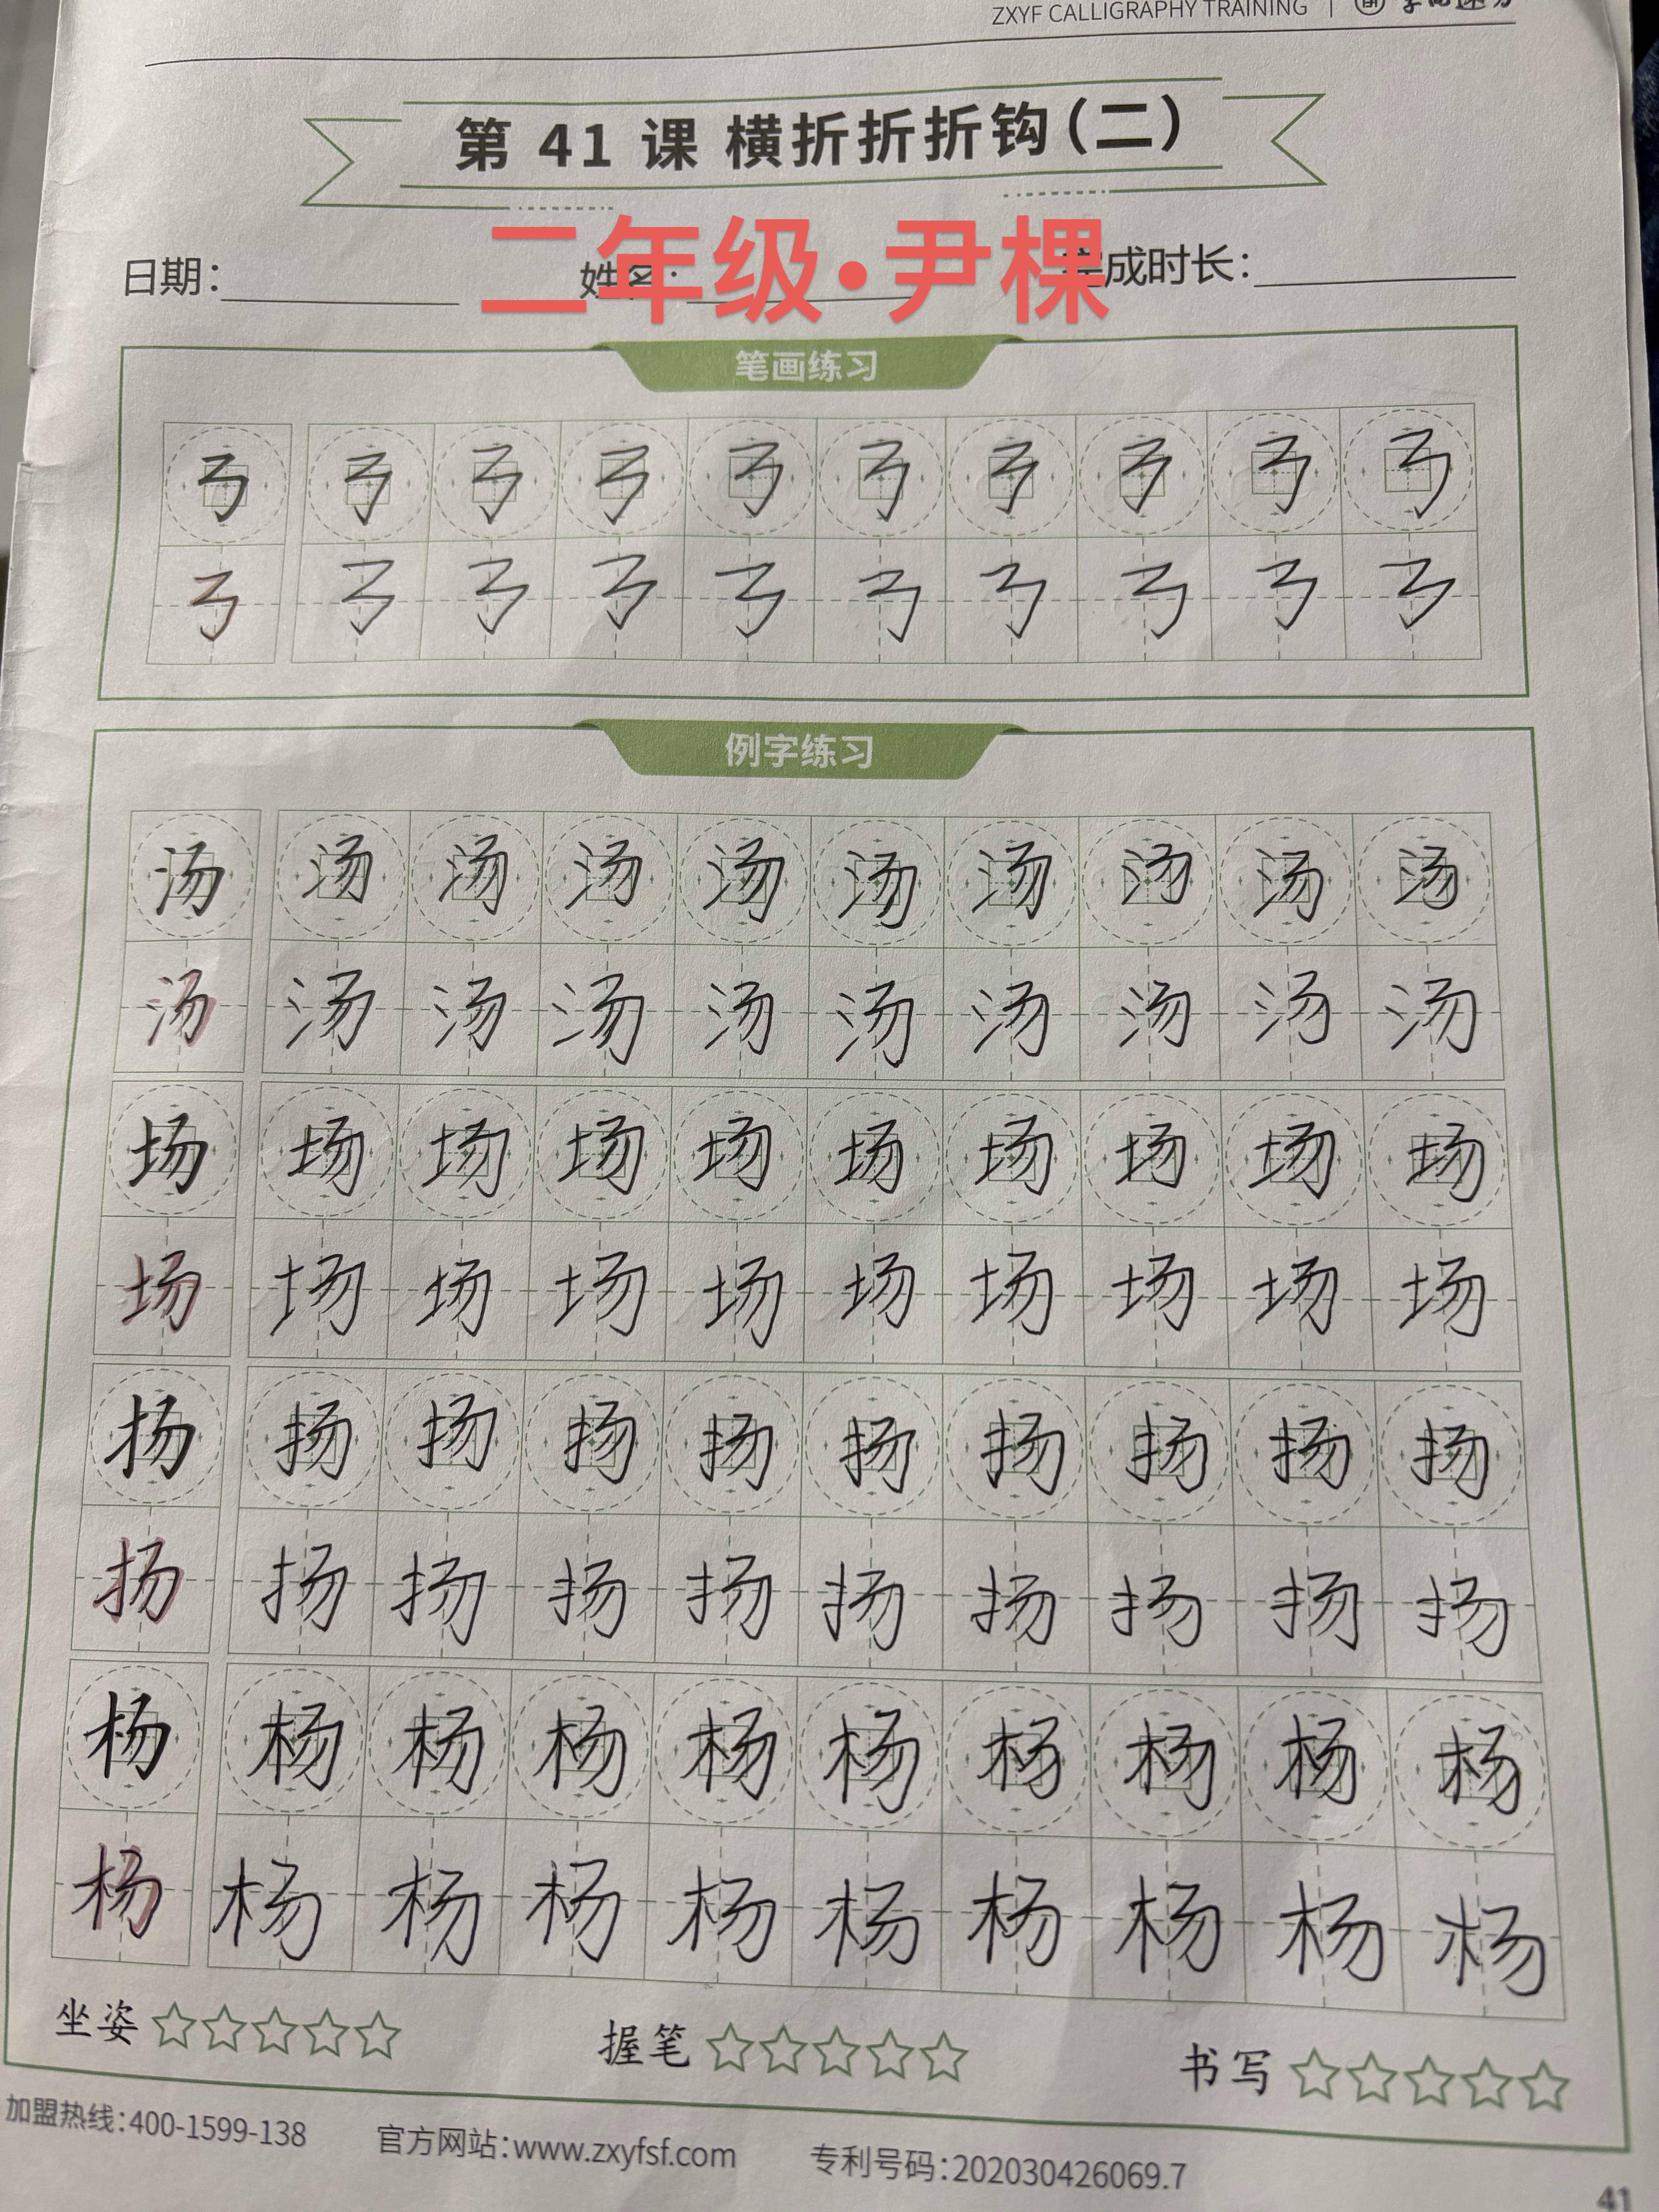 ZXYF CALLIGRAPHY TRAINING
第 41 课 横折折折钩(二)
二年级·尹棵
日期: 姓名: 完成时长:
笔画练习
㇡ ㇡ ㇡ ㇡ ㇡ ㇡ ㇡ ㇡ ㇡ ㇡
㇡ ㇡ ㇡ ㇡ ㇡ ㇡ ㇡ ㇡ ㇡ ㇡
例字练习
汤 汤 汤 汤 汤 汤 汤 汤 汤 汤
汤 汤 汤 汤 汤 汤 汤 汤 汤 汤
场 场 场 场 场 场 场 场 场 场
场 场 场 场 场 场 场 场 场 场
扬 扬 扬 扬 扬 扬 扬 扬 扬 扬
扬 扬 扬 扬 扬 扬 扬 扬 扬 扬
杨 杨 杨 杨 杨 杨 杨 杨 杨 杨
杨 杨 杨 杨 杨 杨 杨 杨 杨 杨
坐姿 ☆☆☆☆☆ 握笔 ☆☆☆☆☆ 书写 ☆☆☆☆☆
加盟热线:400-1599-138 官方网站:www.zxyfsf.com 专利号码:202030426069.7
41